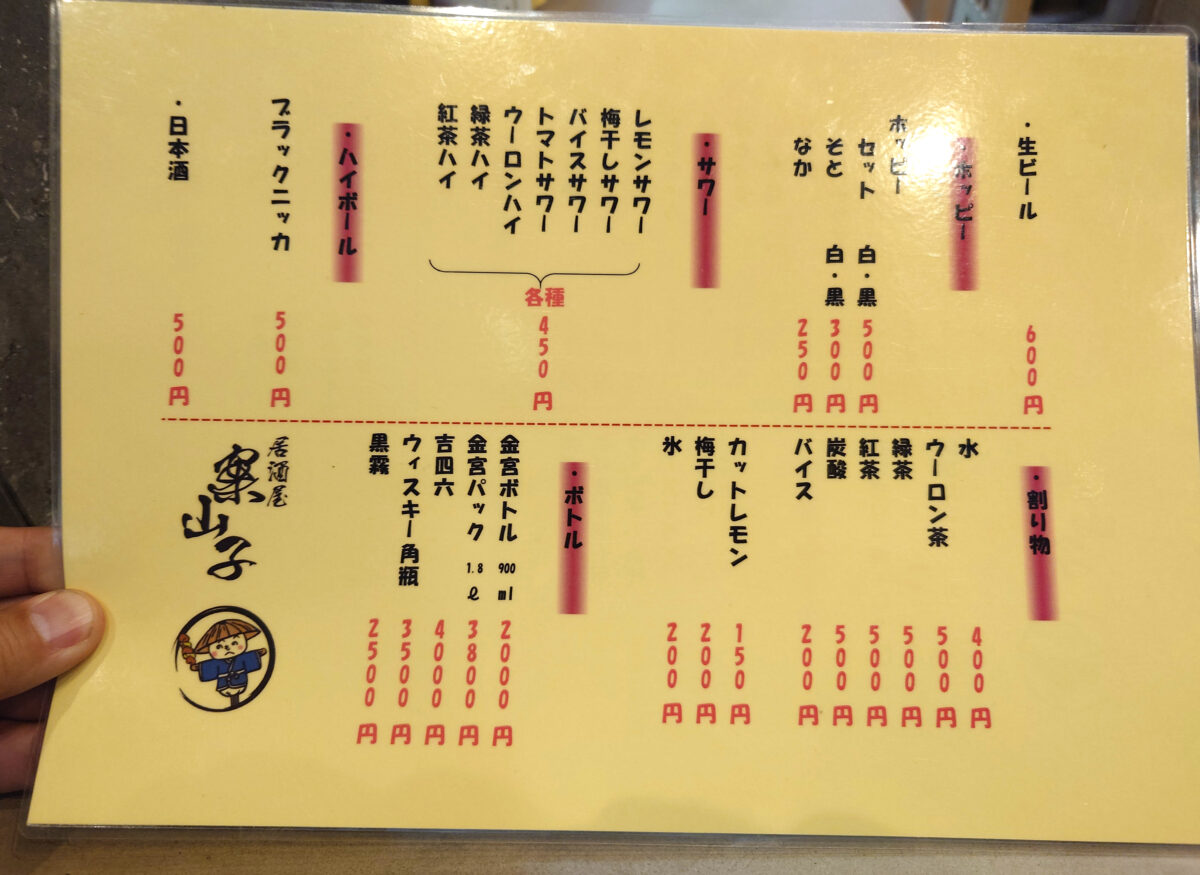 ・生ビール 600円
・ホッピー
ホッピー
セット 白・黒 500円
そと 白・黒 300円
なか 250円
・サワー
レモンサワー
梅干しサワー
バイスサワー
トマトサワー
ウーロンハイ
緑茶ハイ
紅茶ハイ
各種 450円
・ハイボール
ブラックニッカ 500円
・日本酒 500円
・割り物
水 400円
ウーロン茶 500円
緑茶 500円
紅茶 500円
炭酸 500円
バイス 200円
カットレモン 150円
梅干し 200円
氷 200円
・ボトル
金宮ボトル 900ml 2000円
金宮パック 1.8ℓ 3800円
吉四六 4000円
ウィスキー角瓶 3500円
黒霧 2500円
居酒屋
案山子